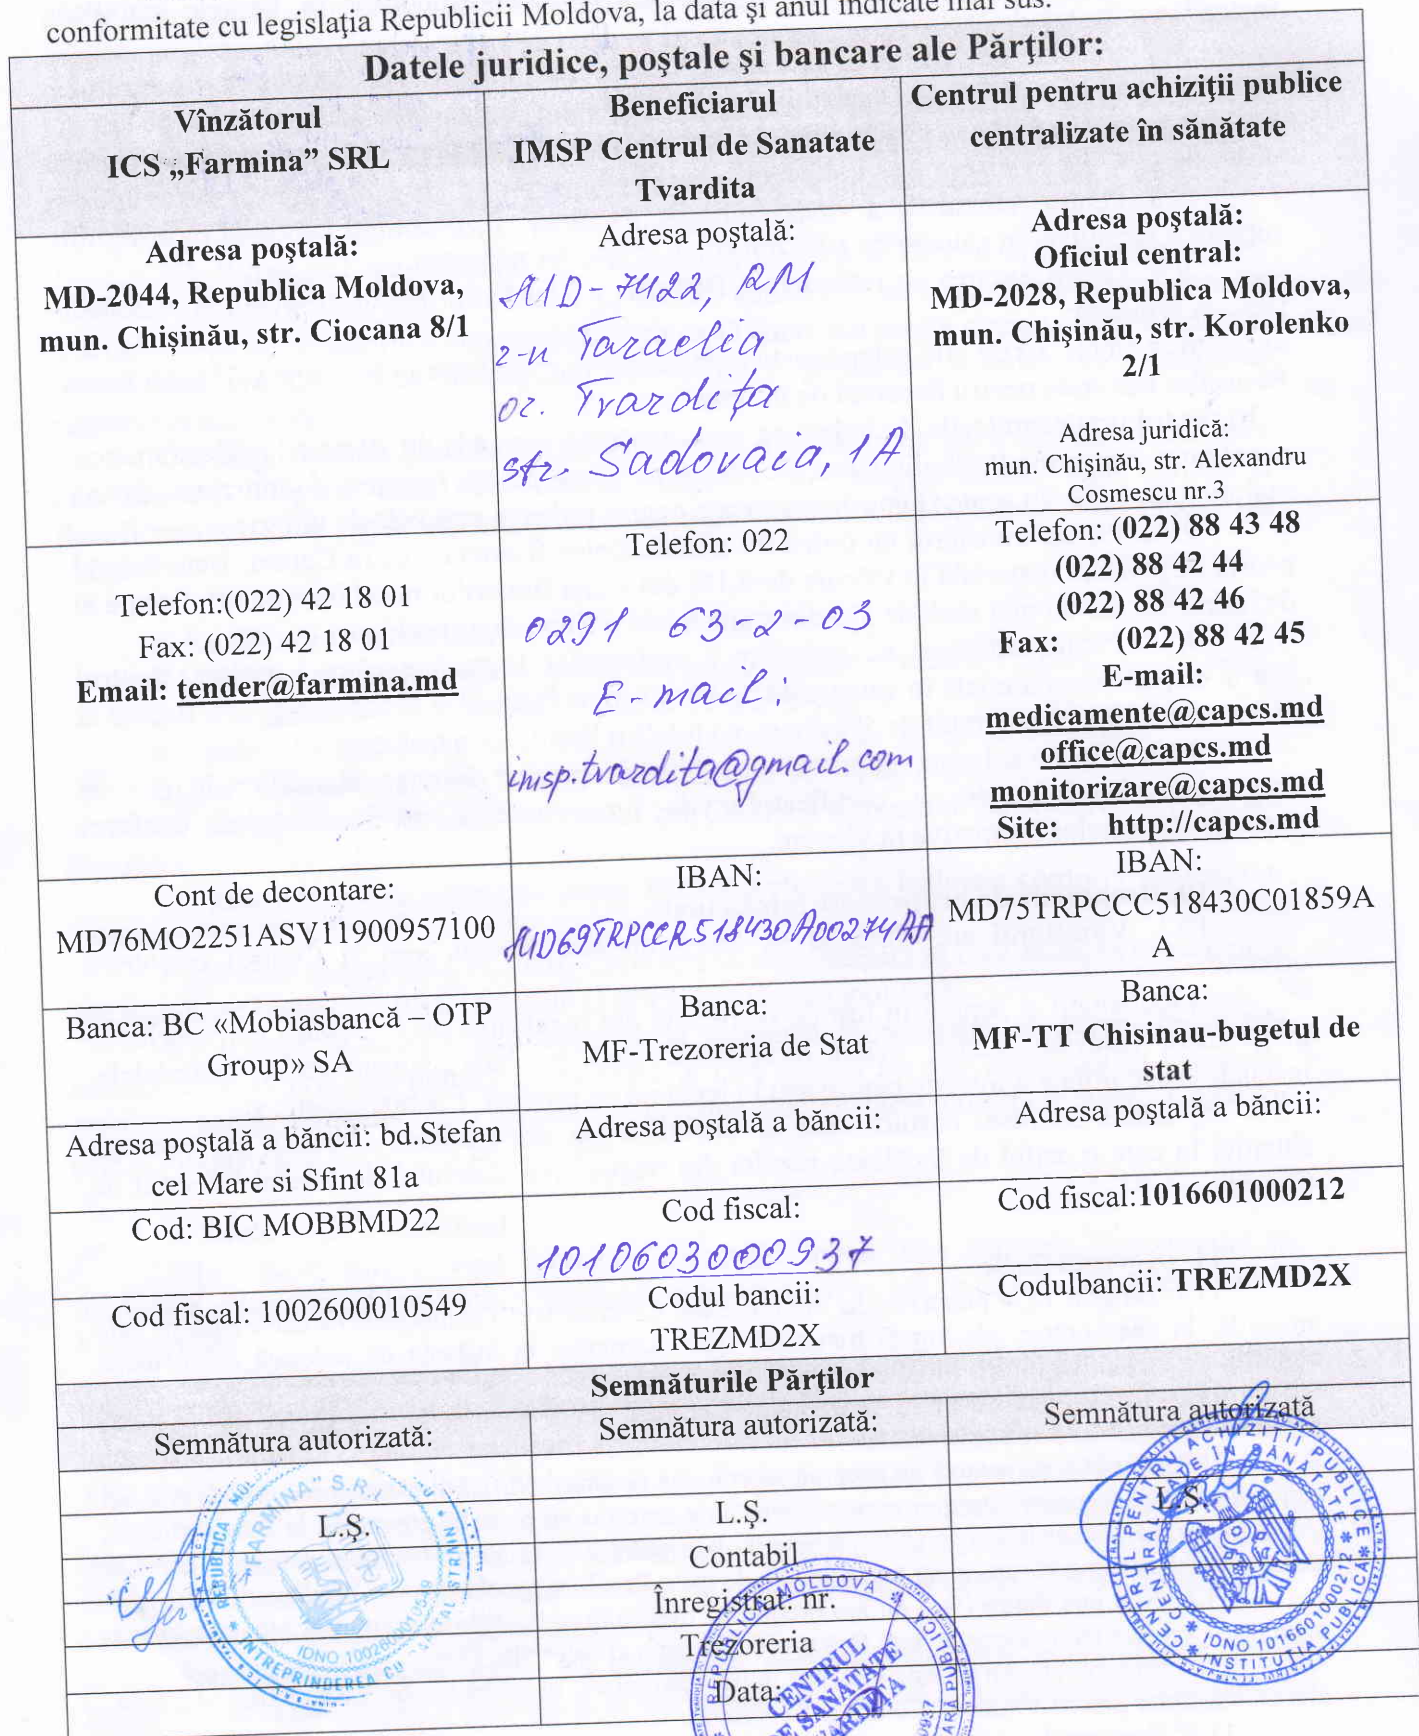 conformitate cu legislaţia Republicii Moldova, la data şi anul indicate mai sus.
Datele juridice, poştale şi bancare ale Părţilor:
Vînzătorul
ICS „Farmina” SRL
Beneficiarul
IMSP Centrul de Sanatate
Tvardita
Centrul pentru achiziţii publice
centralizate în sănătate
Adresa poştală:
MD-2044, Republica Moldova,
mun. Chișinău, str. Ciocana 8/1
Adresa poştală:
MD-7422, RM
r-n Taraclia
or. Tvardița
str. Sadovaia, 1A
Adresa poştală:
Oficiul central:
MD-2028, Republica Moldova,
mun. Chişinău, str. Korolenko
2/1
Adresa juridică:
mun. Chişinău, str. Alexandru
Cosmescu nr.3
Telefon:(022) 42 18 01
Fax: (022) 42 18 01
Email: tender@farmina.md
Telefon: 022
0291 63-2-03
E-mail:
imsp.tvardita@gmail.com
Telefon: (022) 88 43 48
(022) 88 42 44
(022) 88 42 46
Fax: (022) 88 42 45
E-mail:
medicamente@capcs.md
office@capcs.md
monitorizare@capcs.md
Site: http://capcs.md
Cont de decontare:
MD76MO2251ASV11900957100
IBAN:
MD69TRPCCR518430A00274AA
IBAN:
MD75TRPCCC518430C01859A
A
Banca: BC «Mobiasbancă – OTP
Group» SA
Banca:
MF-Trezoreria de Stat
Banca:
MF-TT Chisinau-bugetul de
stat
Adresa poştală a băncii: bd.Stefan
cel Mare si Sfint 81a
Adresa poştală a băncii:
Adresa poştală a băncii:
Cod: BIC MOBBMD22
Cod fiscal:
1010603000937
Cod fiscal:1016601000212
Cod fiscal: 1002600010549
Codul bancii:
TREZMD2X
Codulbancii: TREZMD2X
Semnăturile Părţilor
Semnătura autorizată:
Semnătura autorizată:
Semnătura autorizată
L.Ş.
L.Ş.
L.Ş.
Contabil
Înregistrat: nr.
Trezoreria
Data:
"FARMINA" S.R.L.
REPUBLICA
ÎNTREPRINDEREA CU
STRĂIN
IDNO 1002600010549
REPUBLICA MOLDOVA
CENTRUL
DE SANATATE
TVARDITA
PUBLICĂ
CENTRUL PENTRU ACHIZIŢII PUBLICE
CENTRALIZATE ÎN SĂNĂTATE
IDNO 1016601000212
INSTITUŢIA PUBLICĂ